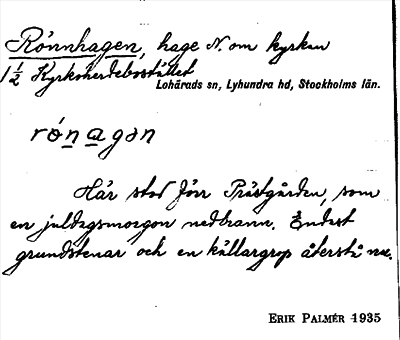 Rönnhagen, hage N. om kyrkan
1 1/2 Kyrkoherdebostället
Lohärads sn, Lyhundra hd, Stockholms län.
rónagan
Här stod förr Prästgården, som
en juldagsmorgon nedbrann. Endast
grundstenar och en källargrop återstå nu.
ERIK PALMÉR 1935